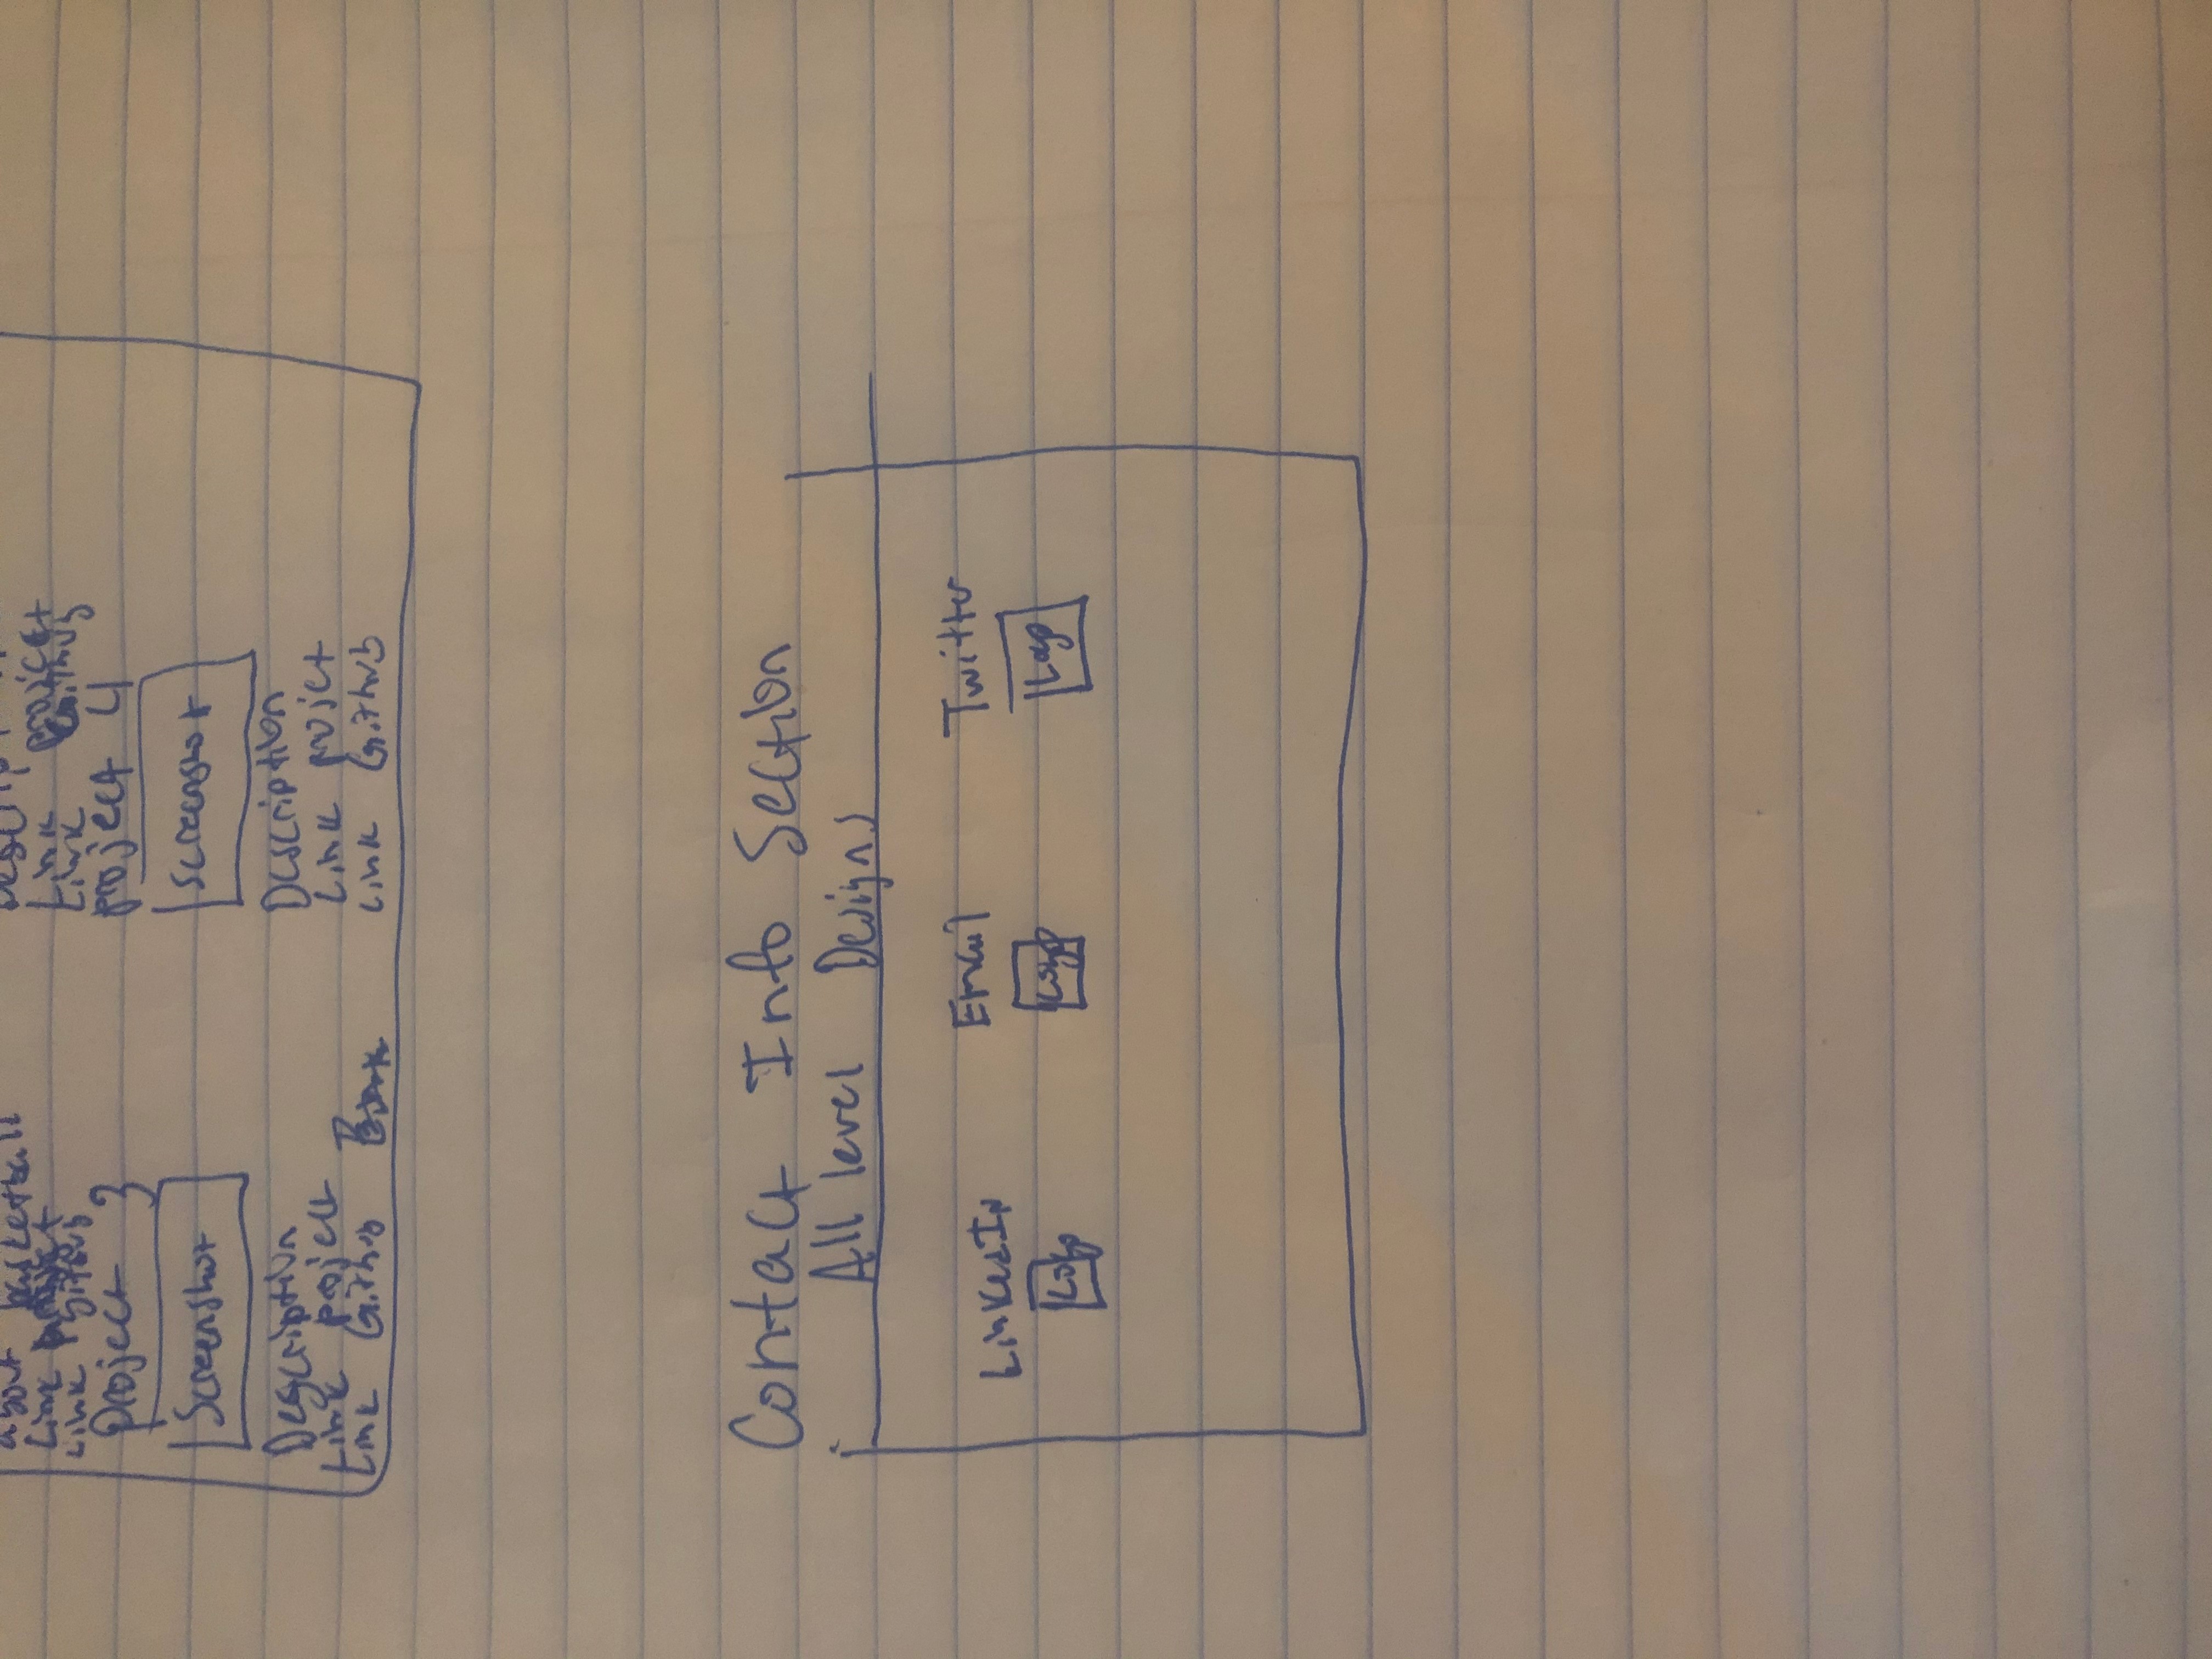 about basketball
Link
Link github
Project 3
Screenshot
Description
Link project
Link Github
Link project
Link github
project 4
Screenshot
Description
Link project
Link Github
Contact Info Section
All level Designs
LinkedIn
Logo
Email
Logo
Twitter
Logo